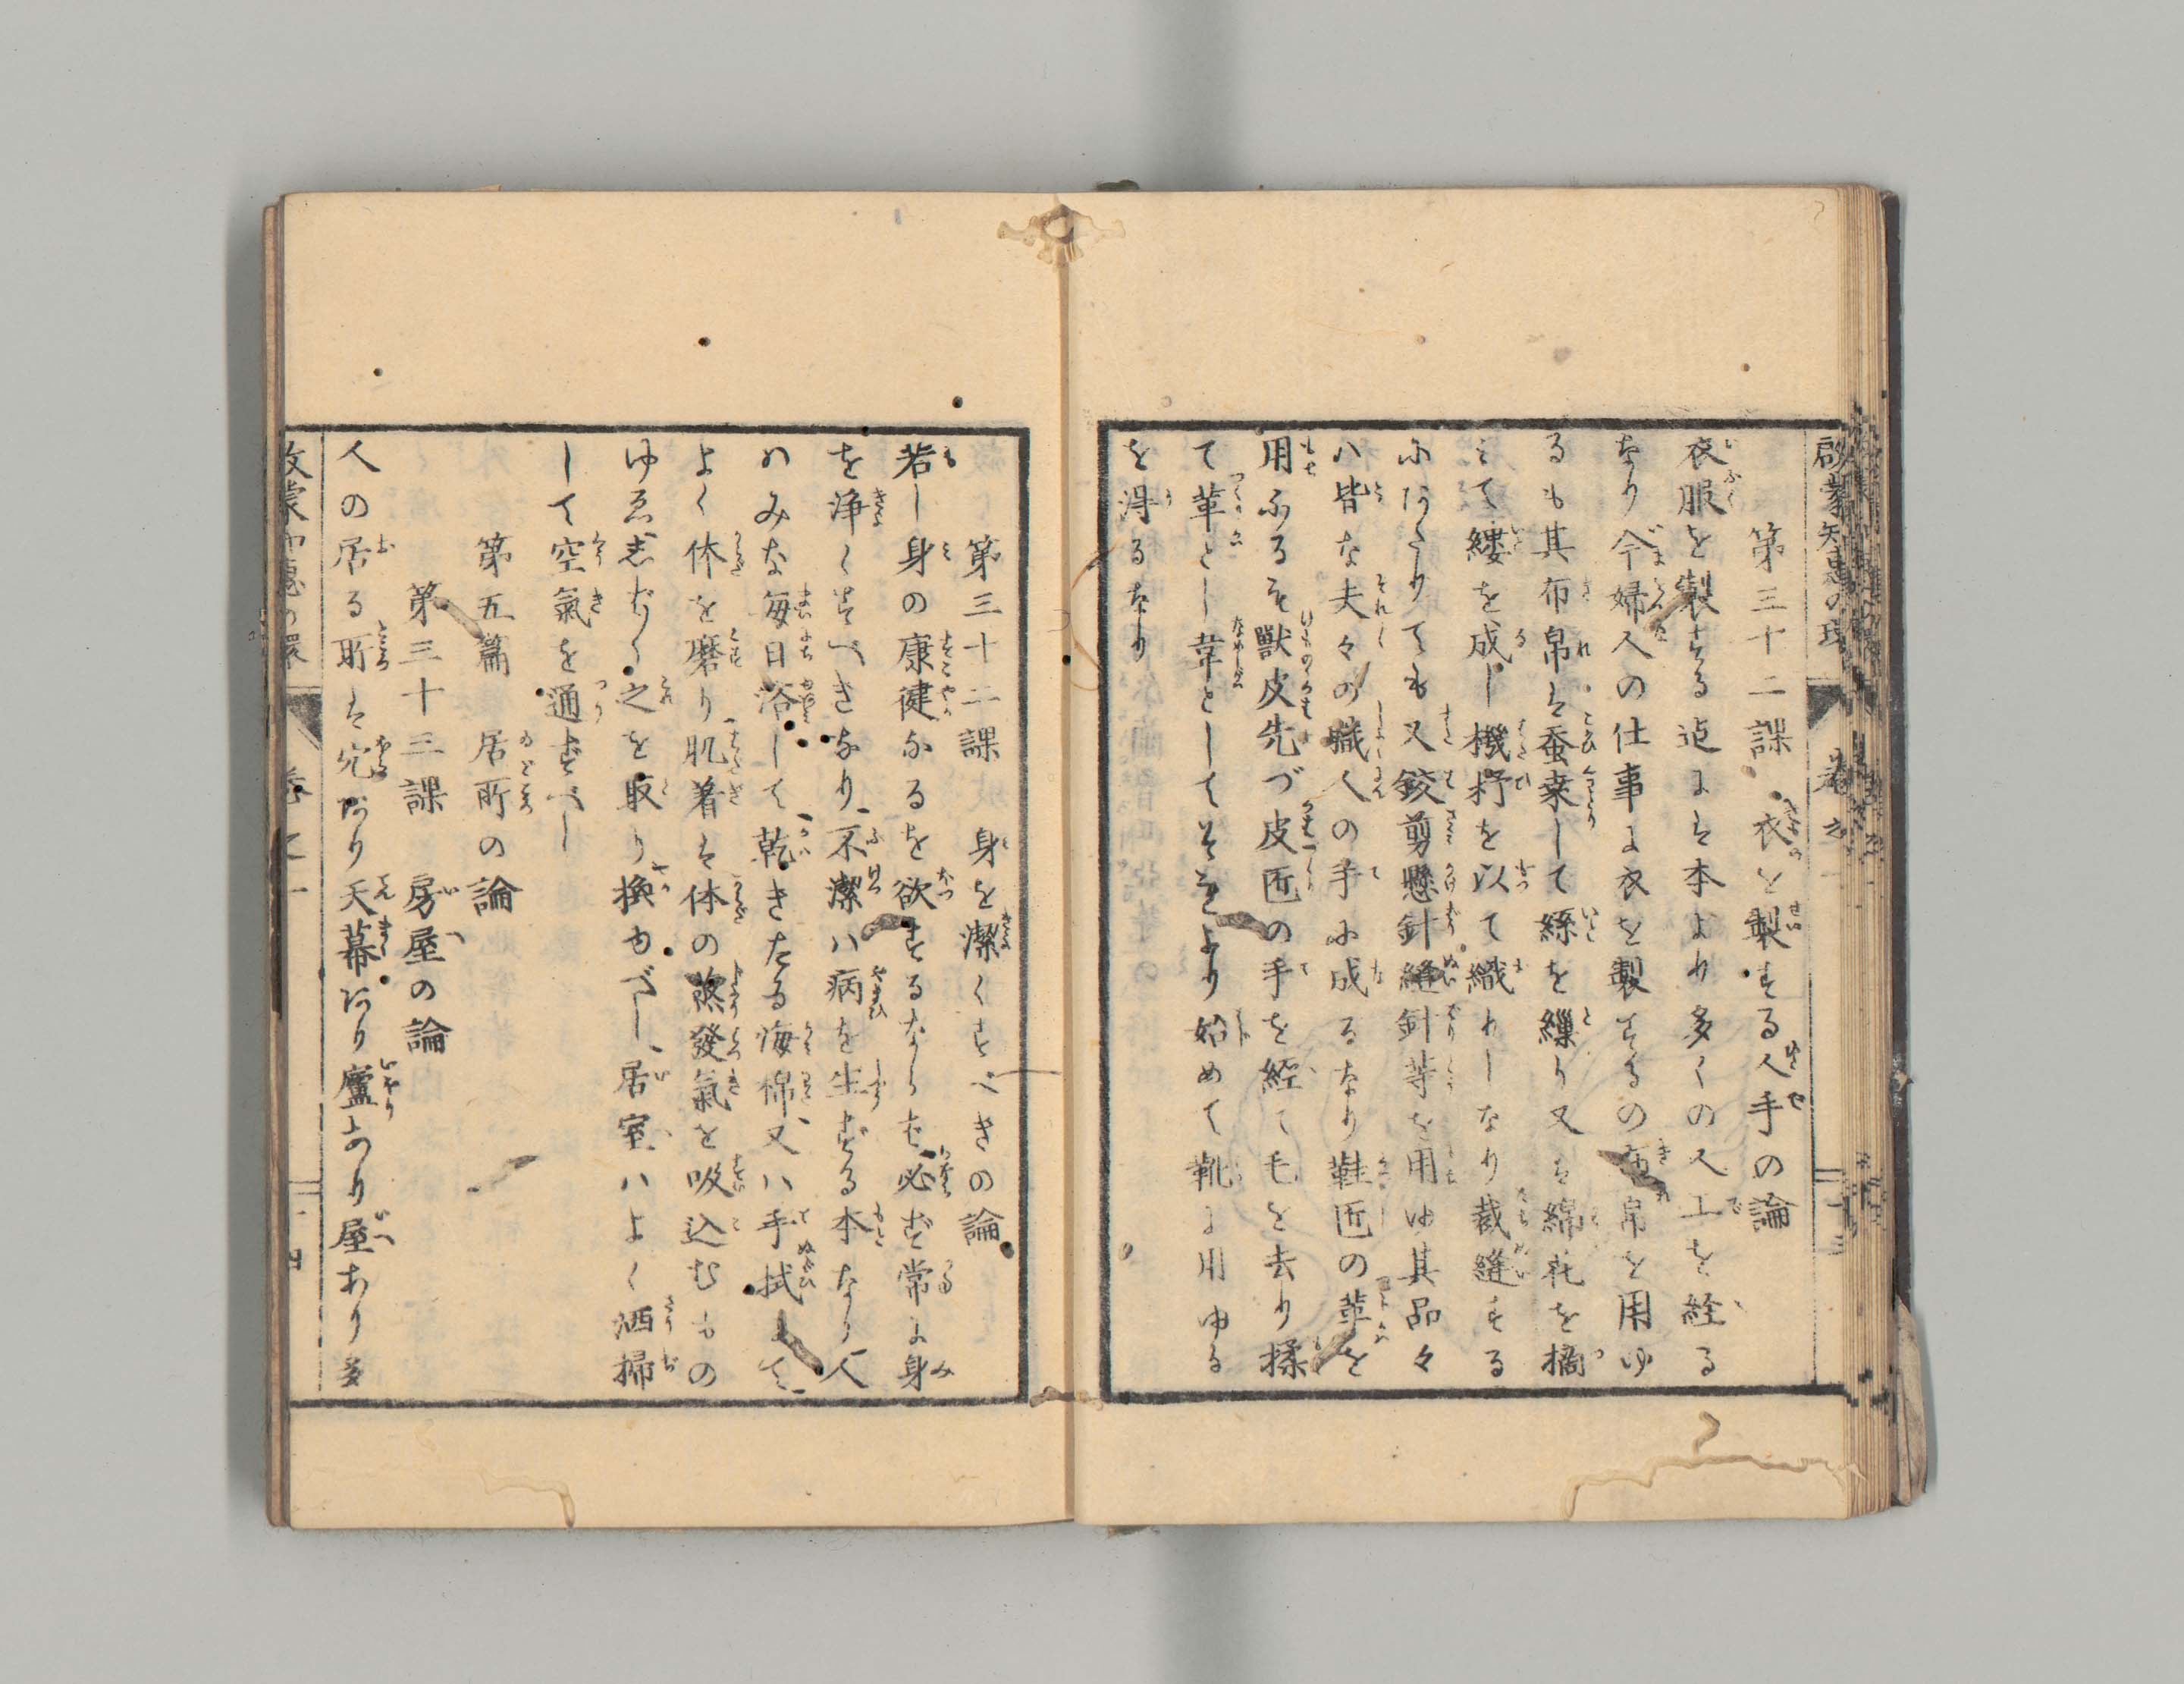 啓蒙知恵の環 巻之一 二十三
第三十二課 衣を製する人手の論
衣服を製する迠には本より多くの人工を経る
なり今婦人の仕事に衣を製するの布帛を用ゆ
るも其布帛は蚕桒して絲を繰り又は綿花を摘
みて縷を成し機杼を以て織りしなり裁縫する
にあたりても又鉸剪懸針縫針等を用ゆ其品々
ハ皆な夫々の職人の手に成るなり鞋匠の革を
用ふるも獣皮先づ皮匠の手を経て毛を去り揉
て革とし韋としてそれより始めて靴に用ゆる
を得るなり
第三十二課 身を潔くすべきの論
若し身の康健なるを欲するならば必ず常に身
を浄くすべきなり不潔ハ病を生ずる本なり人
ハみな毎日浴して乾きたる海棉又ハ手拭にて
よく体を磨り肌着は体の蒸發氣を吸込むもの
ゆゑ志ばしば之を取り換ゆべし居室ハよく洒掃
して空氣を通ずべし
第五篇 居所の論
第三十三課 房屋の論
人の居る所は穴あり天幕あり廬あり屋あり多
啓蒙知恵の環 巻之一